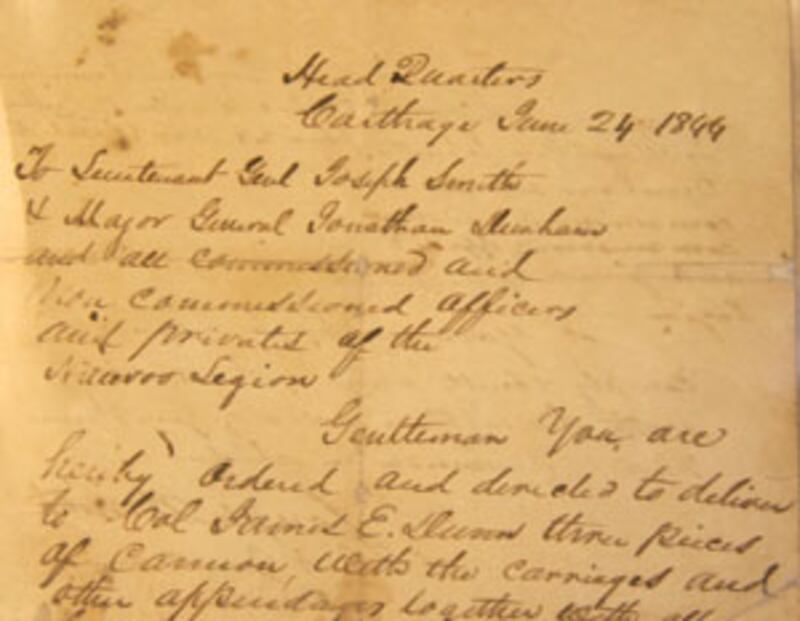 Head Quarters
Carthage June 24 1844
To Lieutenant Genl Joseph Smith
& Major General Jonathan Dunham
and all commissioned and
non commissioned officers
and privates of the
Nauvoo Legion
Gentleman You are
hereby ordered and directed to deliver
to Col James E. Dunn three pieces
of Cannon, with the carriages and
other appendages together with all